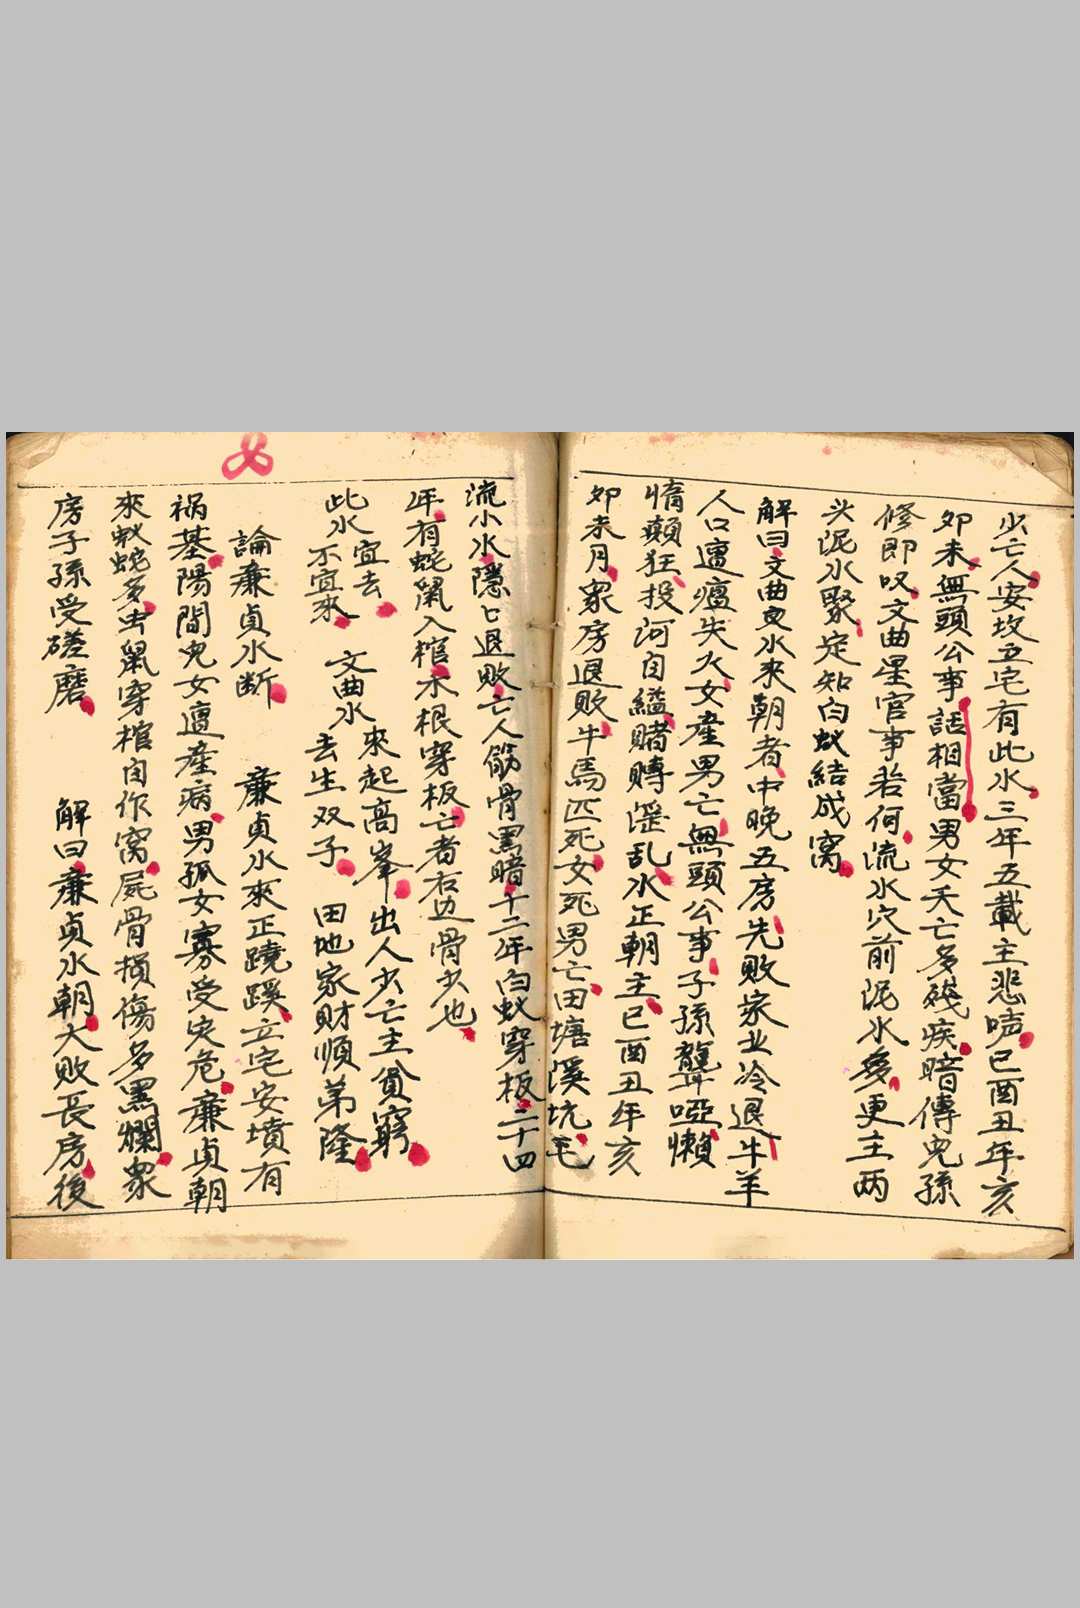 少亡人安坟立宅有此水三年五載主悲啼已酉丑年亥
夘未無頭公事話相當男女夭亡多殘疾暗傳児孫
修即叹文曲星官事若何流水穴前泥水多更主两
头泥水聚定知白蚁結成窝
解曰文曲曳水来朝者中晚五房先敗家业冷退牛羊
人口遭瘟失火女產男亡無頭公事子孫聾啞懒
惰顛狂投河自縊賭賻淫乱水正朝主巳酉丑年亥
夘未月家房退敗牛馬匹死女死男亡田塘溪坑毛
流小水隱匕退敗亡人筋骨黑暗十二年白蚁穿板二十四
年有蛇鼠入棺木根穿板亡者右边骨少也
此水宜去不宜來
文曲水來起高峯出人少亡主貧窮
去生双子田地家財順弟隆
論廉貞水断
廉貞水來正蹺蹊立宅安墳有
禍基陽間児女遭產病男孤女寡受灾危廉貞朝
來蚁蛇多虫鼠穿棺自作窩屍骨損傷多黑爛衆
房子孫受磋磨
解曰廉貞水朝大敗長房後